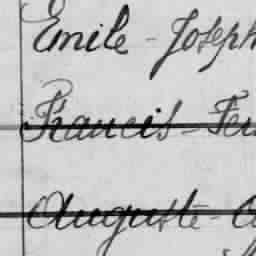 Emile - Joseph
Francis - Fer
Auguste -